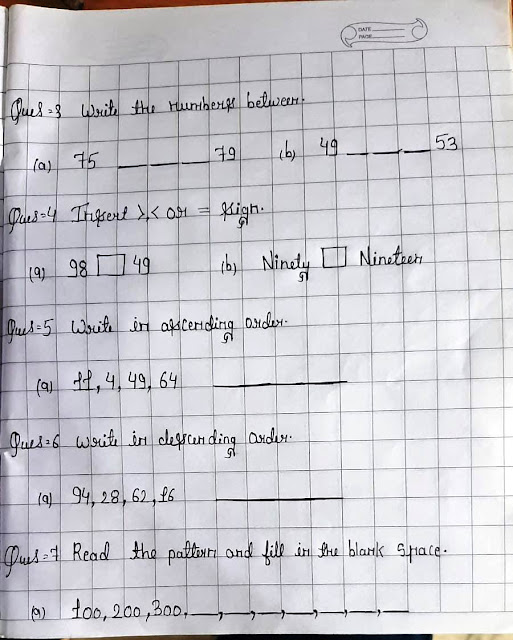 DATE
PAGE
Ques=3 Write the numbers between.
(a) 75 ___ ___ ___ 79 (b) 49 ___ ___ ___ 53
Ques=4 Insert >,< or = sign.
(a) 98 □ 49 (b) Ninety □ Nineteen
Ques=5 Write in ascending order.
(a) 11, 4, 49, 64 ___________
Ques=6 Write in descending order.
(a) 94, 28, 62, 16 ___________
Ques=7 Read the pattern and fill in the blank space.
(a) 100, 200, 300, __, __, __, __, __, __, __